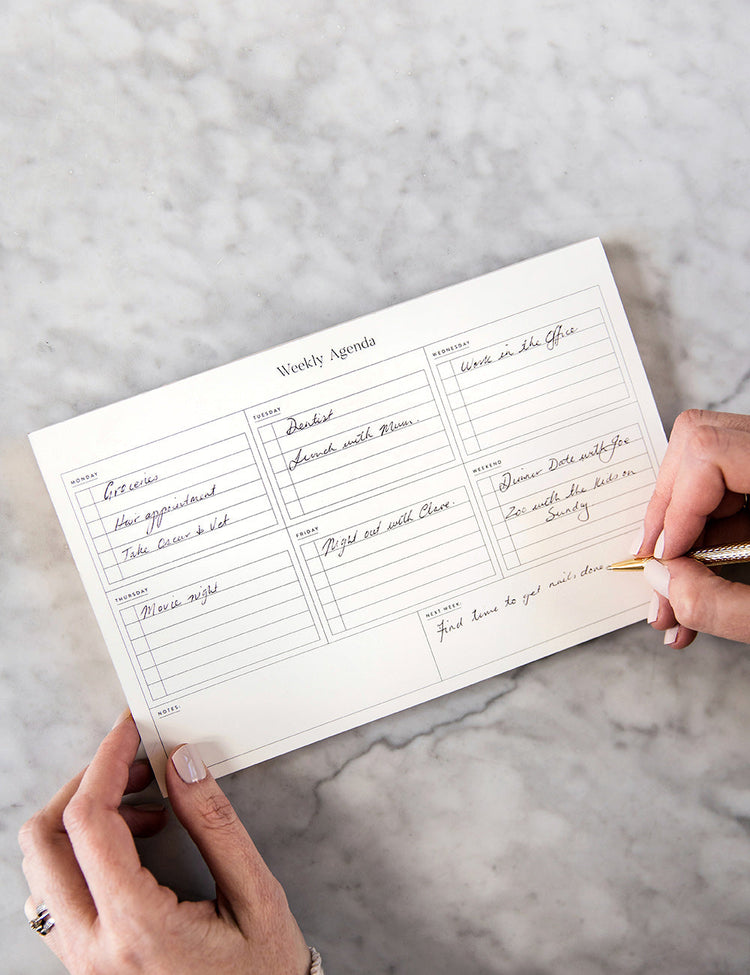 Weekly Agenda
MONDAY
Groceries
Hair appointment
Take Oscar to Vet
TUESDAY
Dentist
Lunch with Mum.
WEDNESDAY
Work in the Office
THURSDAY
Movie night
FRIDAY
Night out with Clare.
WEEKEND
Dinner Date with Joe
Zoo with the Kids on
Sunday
NOTES:
NEXT WEEK:
Find time to get nails done